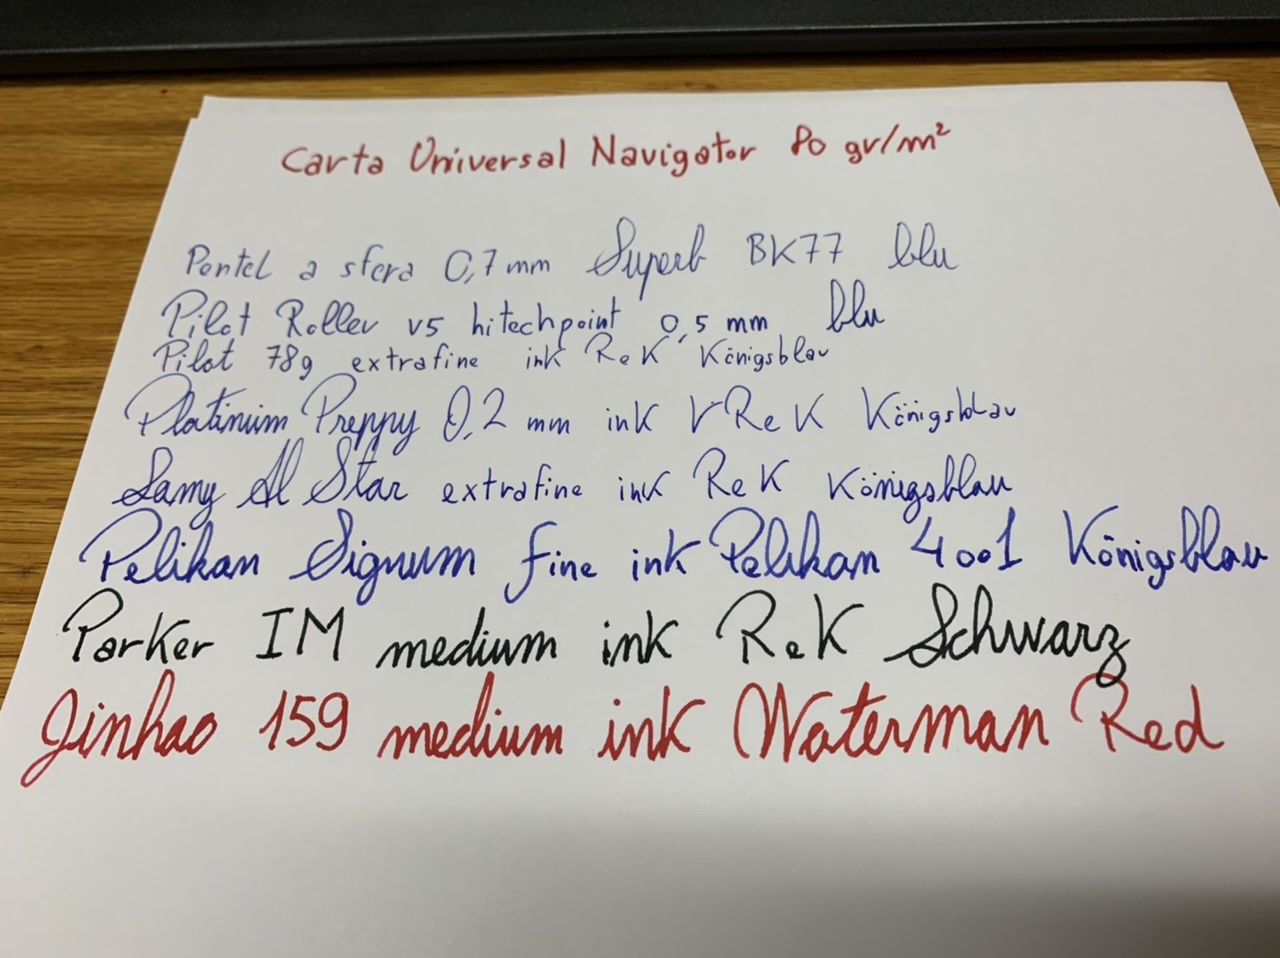 Carta Universal Navigator 80 gr/m²
Pentel a sfera 0,7 mm Superb BK77 blu
Pilot Roller V5 hitechpoint 0,5 mm blu
Pilot 78g extrafine ink ReK Königsblau
Platinium Preppy 0,2 mm ink ReK Königsblau
Lamy Al Star extrafine ink ReK Königsblau
Pelikan Signum fine ink Pelikan 4001 Königsblau
Parker IM medium ink ReK Schwarz
Jinhao 159 medium ink Waterman Red